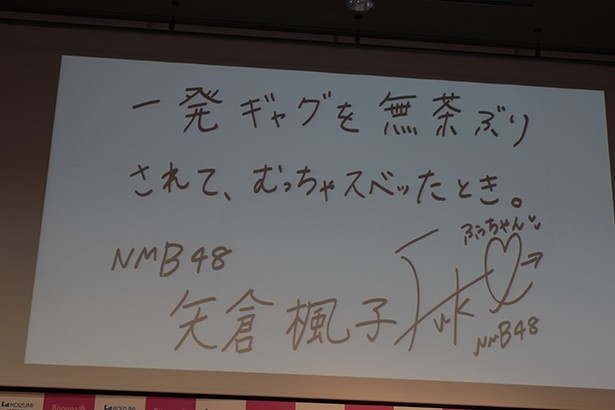 一発ギャグを無茶ぶり
されて、むっちゃスベッたとき。
ふぅちゃん
NMB48
矢倉楓子
NMB48
KOIZUMI
KOIZUMI